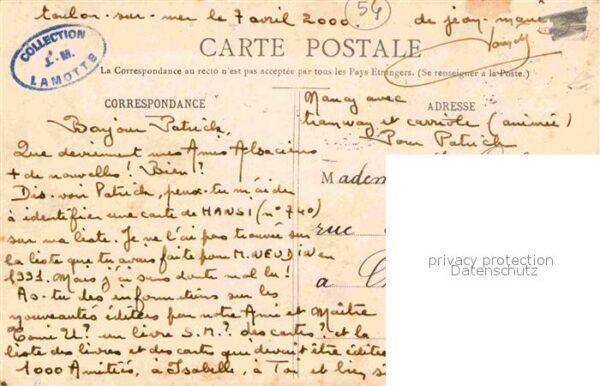 toulon-sur-mer le 7 avril 2000. 54 de jean-marie
COLLECTION
J.M.
LAMOTTE
CARTE POSTALE
La Correspondance au recto n'est pas acceptée par tous les Pays Etrangers. (Se renseigner à la Poste.)
CORRESPONDANCE
ADRESSE
Nancy avec
tramway et carriole (animée)
Pour Patrick
Madem
rue
a
Bonjour Patrick,
Que deviennent mes Amis Alsaciens
+ de nouvelles! Bien!?
Dis-voir Patrick, peux-tu m'aider
à identifier une carte de HANSI (n° 740)
sur ma liste. Je ne l'ai pas trouvée sur
la liste que tu avais faite pour M. NEUDIN en
1991. Mais j'ai sans doute mal lu!
As-tu des informations sur les
nouveautés éditées par notre Ami et Maître
Tomi U? un livre S.M.? des cartes? et la
liste des livres et des cartes que devait être éditée
1000 Amitiés, à Isabelle, à Toi et bien
privacy protection
Datenschutz